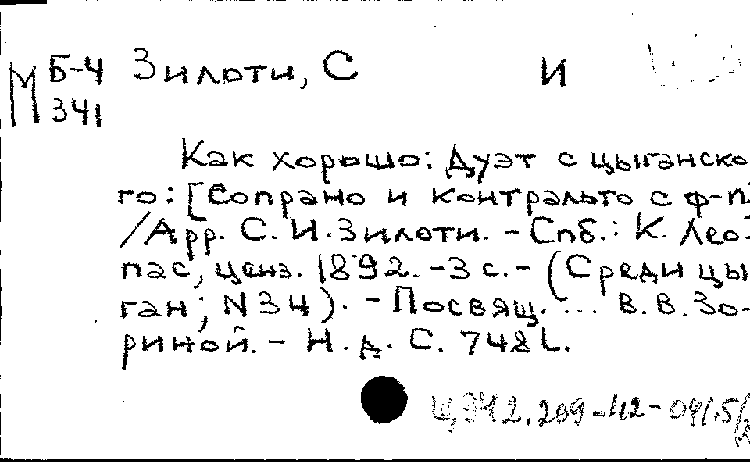 М Б-4 Зилоти, С И
341
Как хорошо: Дуэт с цыганско-
го: [Сопрано и контральто с ф-п]
/Арр. С. И. Зилоти. - Спб.: К. Лео-
пас, ценз. 1892. - 3 с. - (Среди цы-
ган; N 34). - Посвящ. ... В. В. Зо-
риной. - Н. д. С. 748 L.